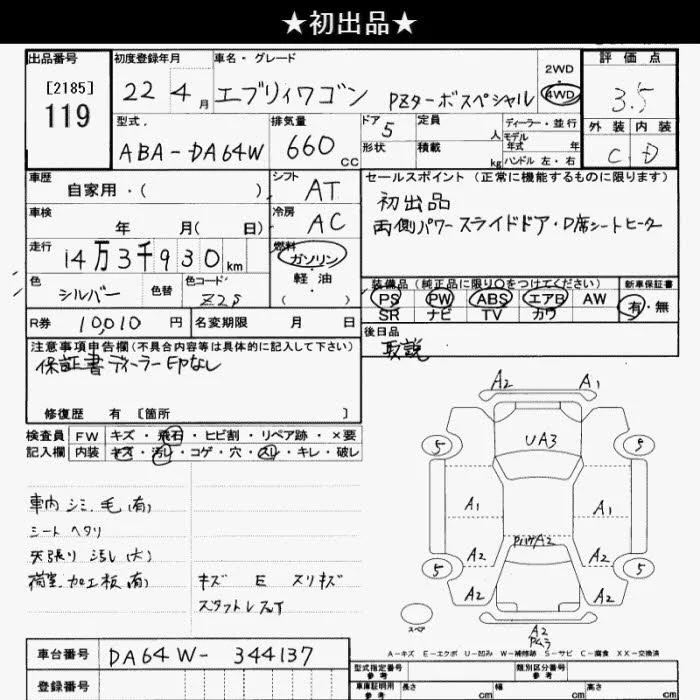 ★初出品★
出品番号 初度登録年月 車名・グレード 評価点
[2185]
119
22 4月 エブリィワゴン PZターボスペシャル
2WD
4WD
3.5
型式. 排気量 ドア 定員 人 ディーラー・並行 外装 内装
ABA-DA64W 660cc 5
モデル年式 年
形状 積載 kg ハンドル 左・右
C D
車歴 シフト セールスポイント (正常に機能するものに限ります)
自家用・( ) AT
初出品
車検 冷房
年 月( 日) AC
両側パワースライドドア・D席シートヒーター
走行 燃料
14万3千930km ガソリン
軽・油
( )
色 色替 色コード
シルバー Z2S
装備品(純正品に限り○をつけてください) 新車保証書
PS PW ABS エアB AW 有・無
SR ナビ TV カワ
R券 10,010円 名変期限 月 日
後日品
取説
注意事項申告欄(不具合内容等は具体的に記入して下さい)
保証書ディーラー印なし
修復歴 有 [箇所 ]
検査員 FW キズ・飛石・ヒビ割・リペア跡・×要
記入欄 内装 キズ・汚レ・コゲ・穴・スレ・キレ・破レ
車内シミ.毛(有)
シートヘタリ
天張り汚レ(大)
荷室.加工板(有)
キズ E スリキズ
スタットレスT
A2 A1
5 UA3 5
A1 A1
A2 A2
5 5
A2 A2
A2
スペア
A-キズ E-エクボ U-凹み W-補修跡 S-サビ C-腐食 XX-交換済
車台番号 DA64W-344137
登録番号
型式指定番号
参考
類別区分番号
参考
車庫証明用
参考
長さ cm 幅 cm 高さ cm